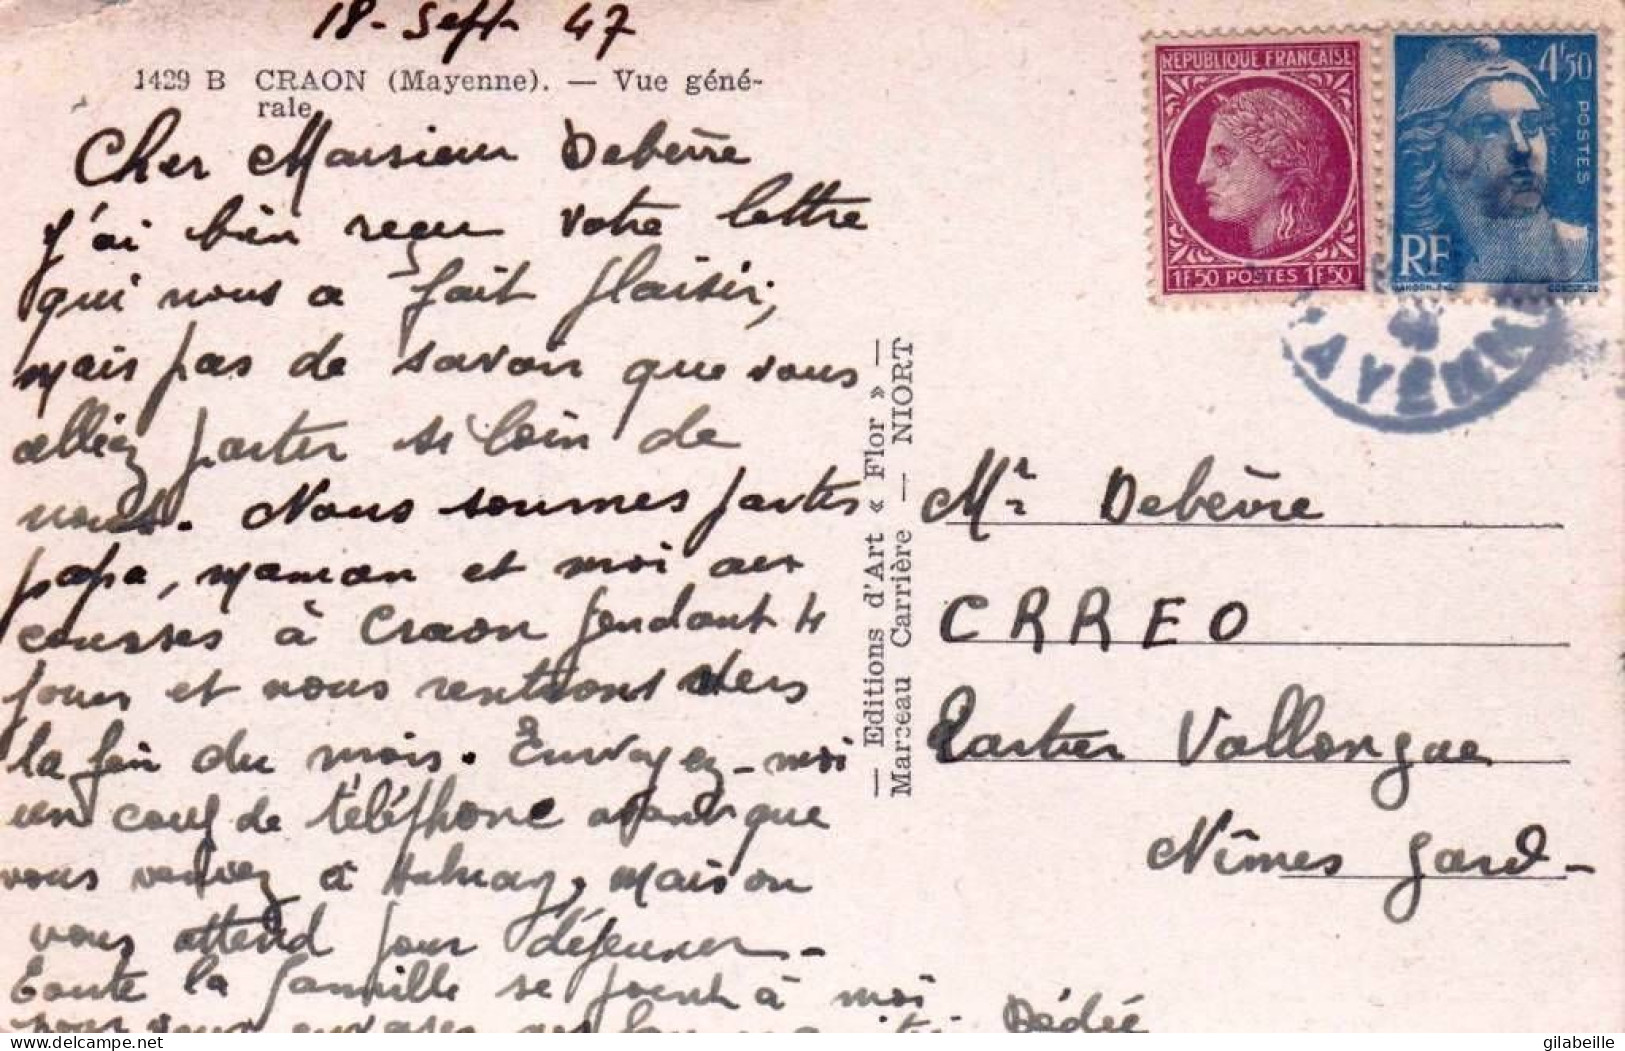 18 - Sept 47
1429 B CRAON (Mayenne). — Vue géné-
rale
Cher Monsieur Debèvre
j'ai bien reçu votre lettre
qui nous a fait plaisir,
mais pas de savoir que vous
alliez partir si loin de
nous. Nous sommes partis
papa, maman et moi aux
courses à Craon pendant 4
jours et nous rentrons vers
la fin du mois. Envoyez-moi
un coup de téléphone avant que
vous veniez à Aulnay, maison
vous attend pour déjeuner -
Toute la famille se joint à moi
pour vous envoyer
Dédée
— Editions d'Art « Flor » —
Marceau Carrière — NIORT
REPUBLIQUE FRANÇAISE
1F50 POSTES 1F50
4F50
POSTES
RF
AYENN
Mr Debèvre
CRREO
Quartier Vallongue
Nîmes Gard -
delcampe.net
gilabeille